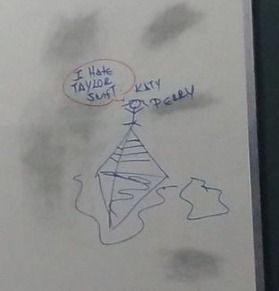 I HATE
TAYLOR
SWIFT
KATY
PERRY